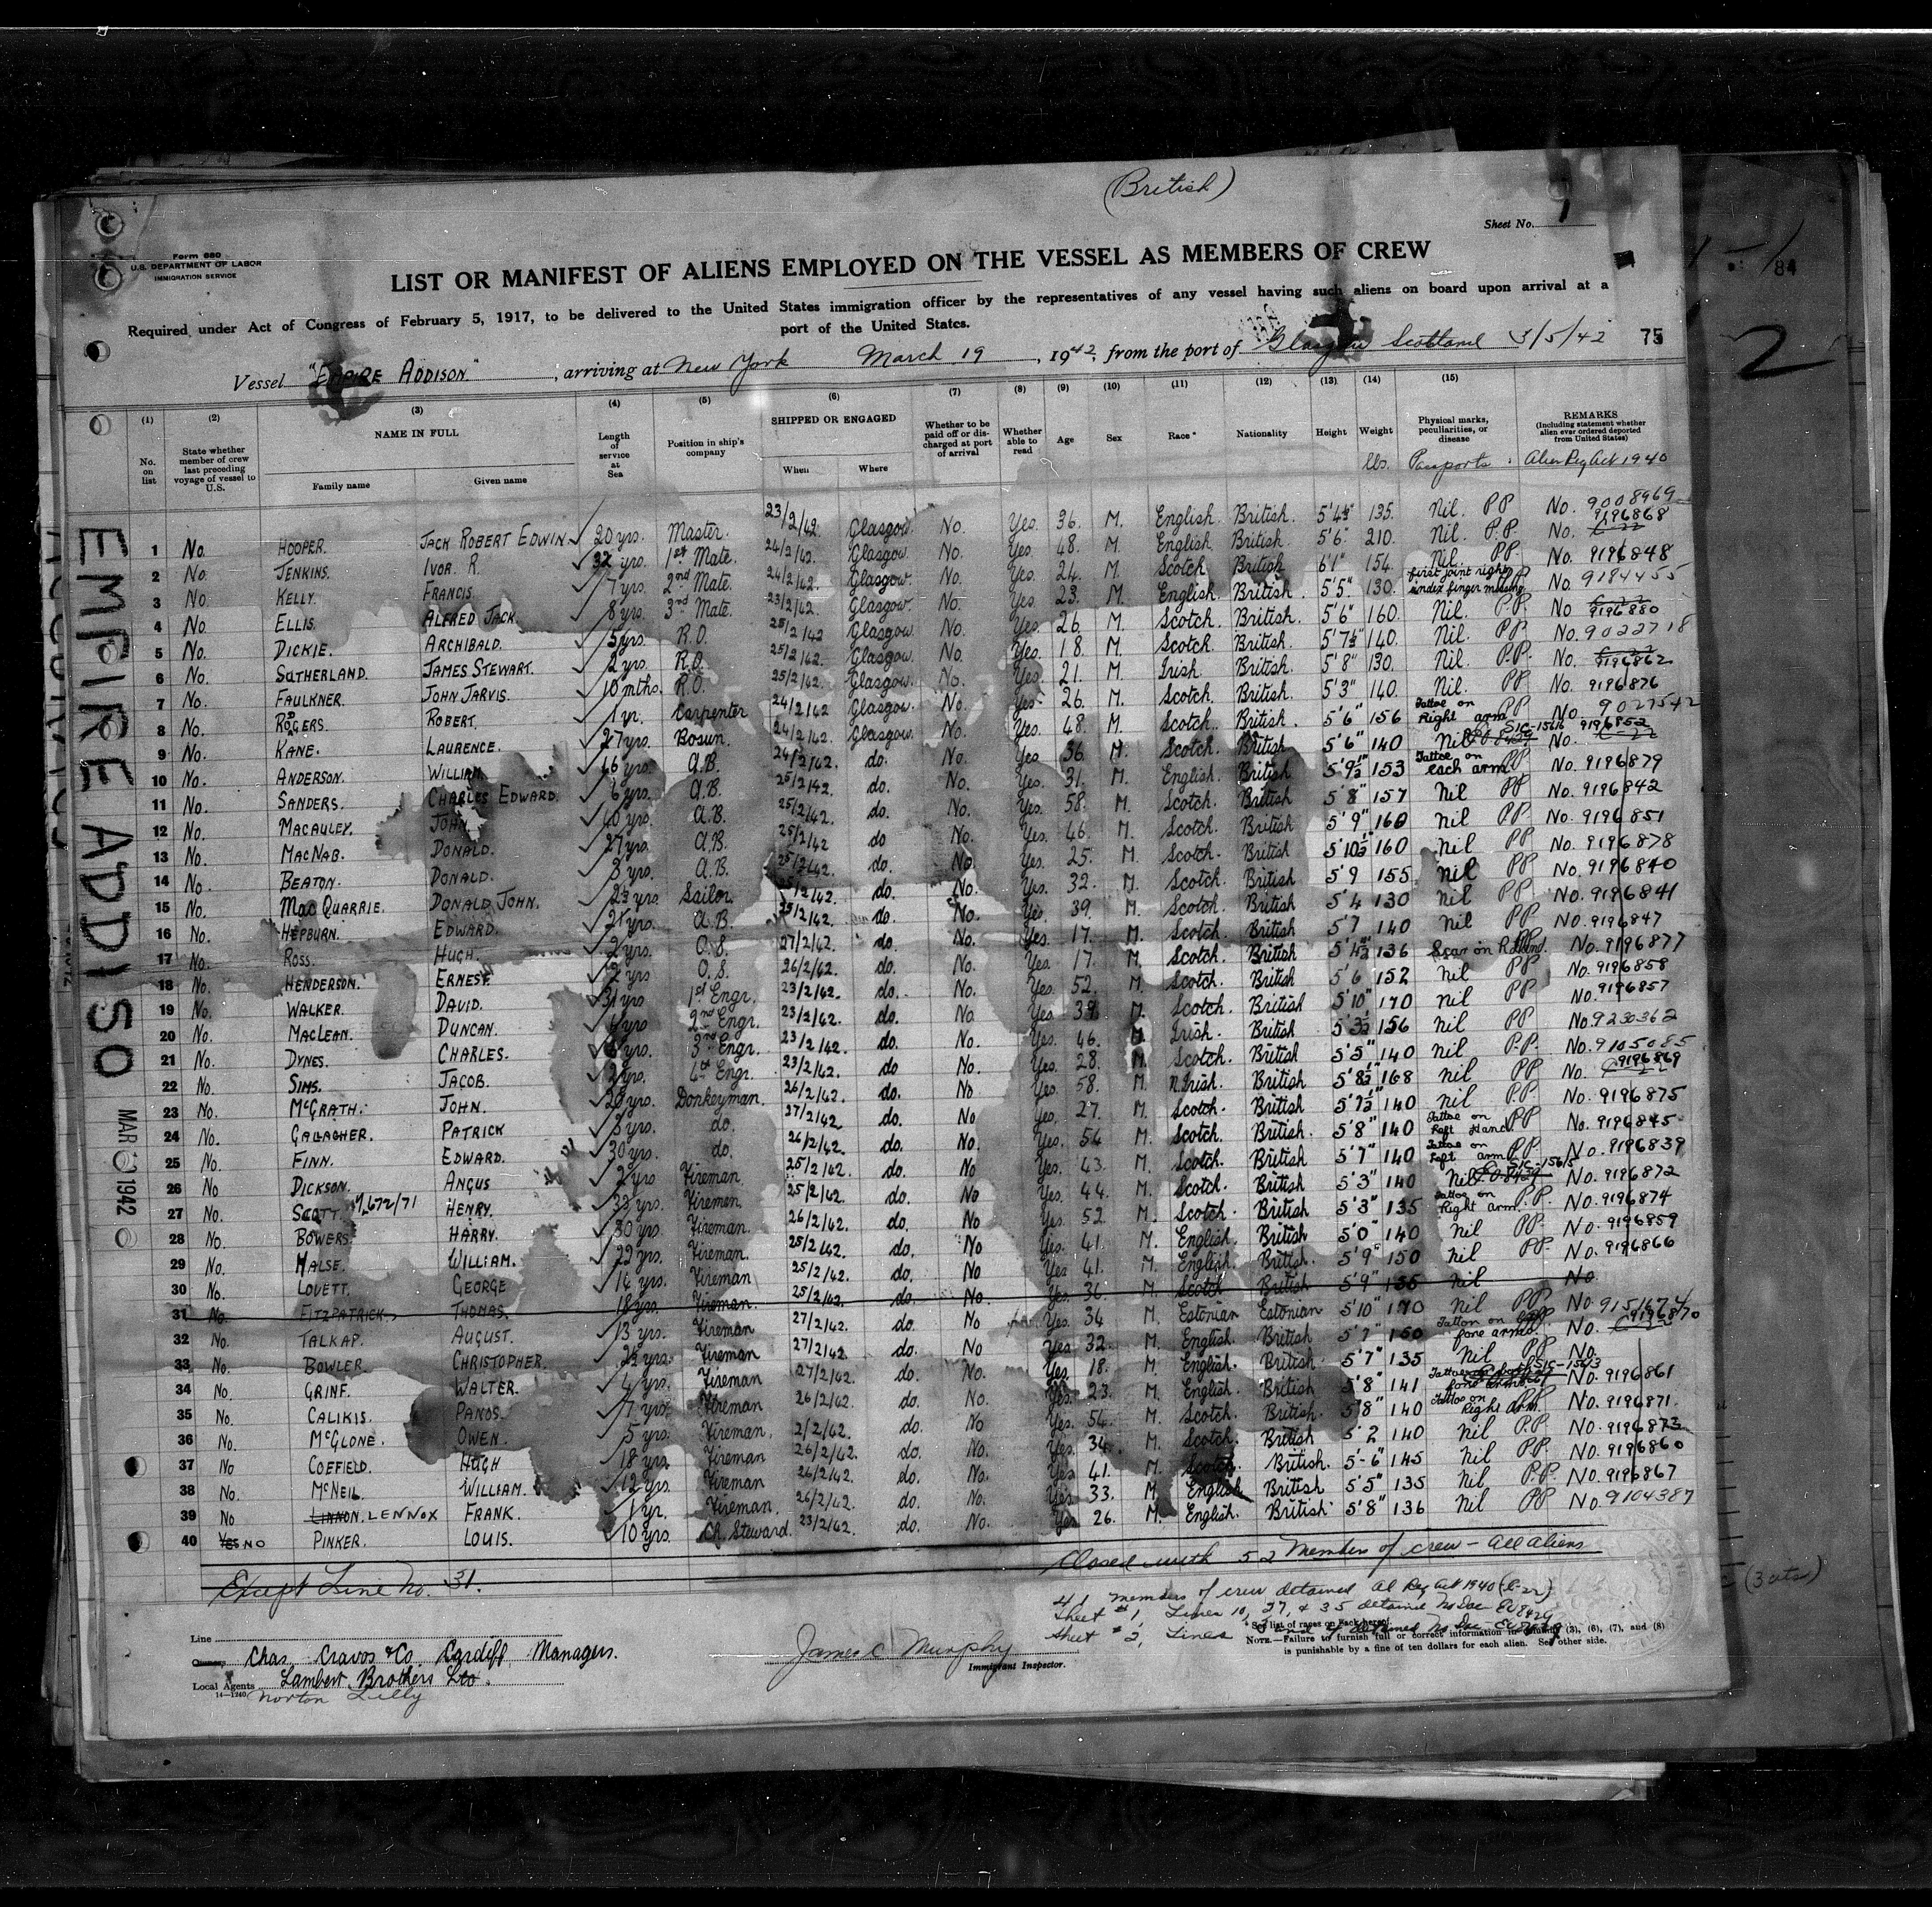 (British)
Sheet No. 1
Form 680
U.S. DEPARTMENT OF LABOR
IMMIGRATION SERVICE
LIST OR MANIFEST OF ALIENS EMPLOYED ON THE VESSEL AS MEMBERS OF CREW
Required under Act of Congress of February 5, 1917, to be delivered to the United States immigration officer by the representatives of any vessel having such aliens on board upon arrival at a
port of the United States.
Vessel "EMPIRE ADDISON", arriving at New York March 19, 1942, from the port of Glasgow Scotland 3/5/42
75
84
2
(1) (2) (3) (4) (5) (6) (7) (8) (9) (10) (11) (12) (13) (14) (15)
No. on list
State whether member of crew last preceding voyage of vessel to U.S.
NAME IN FULL
Family name Given name
Length of service at Sea
Position in ship's company
SHIPPED OR ENGAGED
When Where
Whether to be paid off or discharged at port of arrival
Whether able to read
Age Sex Race* Nationality Height Weight
lbs.
Physical marks, peculiarities, or disease
Passports
REMARKS
(Including statement whether alien ever ordered deported from United States)
Alien Reg Act 1940
1 No. HOOPER. JACK ROBERT EDWIN 20 yrs. Master. 23/2/42 Glasgow. No. Yes. 36. M. English. British. 5'4½" 135. Nil. PP No. 9008969
2 No. JENKINS. IVOR. R. 32 yrs. 1st Mate. 24/2/42. Glasgow. No. Yes. 48. M. English. British. 5'6" 210. Nil. P.P. No. 9196868
3 No. KELLY. FRANCIS. 7 yrs. 2nd Mate. 24/2/42. Glasgow. No. Yes. 24. M. Scotch British 6'1" 154. Nil. PP. No. 9196848
4 No. ELLIS. ALFRED JACK 8 yrs. 3rd Mate. 23/2/42. Glasgow. No. Yes. 23. M. English. British. 5'5". 130. first joint right index finger missing PP No. 9184455
5 No. DICKIE. ARCHIBALD. 5 yrs. R.O. 25/2/42 Glasgow. No. Yes. 26. M. Scotch. British. 5'6" 160. Nil. P.P. No 9196880
6 No. SUTHERLAND. JAMES STEWART. 2 yrs. R.O. 25/2/42. Glasgow. No. Yes. 18. M. Scotch. British. 5'7½" 140. Nil. PP No. 9022718
7 No. FAULKNER. JOHN JARVIS. 10 mths. R.O. 25/2/42. Glasgow. No. Yes. 21. M. Irish. British. 5'8" 130. Nil. P.P. No. 9196862
8 No. RODGERS. ROBERT. 1 yr. Carpenter 24/2/42 Glasgow. No. Yes. 26. M. Scotch. British. 5'3" 140. Nil. PP No. 9196876
9 No. KANE. LAURENCE. 27 yrs. Bosun. 24/2/42. Glasgow. No. Yes. 48. M. Scotch. British. 5'6" 156 Tattoo on Right arm PP No. 9027542
10 No. ANDERSON. WILLIAM. 16 yrs. A.B. 24/2/42. do. No. Yes. 36. M. Scotch. British 5'6" 140 Nil SIC-1516 No. 9196852
11 No. SANDERS. CHARLES EDWARD. 6 yrs. A.B. 25/2/42 do. No. Yes. 31. M. English. British 5'9½" 153 Tattoo on each arm PP No. 9196879
12 No. MACAULEY. JOHN 40 yrs. A.B. 25/2/42. do. No. Yes. 58. M. Scotch. British 5'8" 157 nil PP No. 9196842
13 No. MACNAB. DONALD. 27 yrs. A.B. 25/2/42 do No. Yes. 46. M. Scotch. British 5'9" 160 nil PP. No. 9196851
14 No. BEATON. DONALD. 3 yrs. A.B. 25/2/42 do. No. Yes. 25. M. Scotch. British 5'10½" 160 nil PP No. 9196878
15 No. MAC QUARRIE. DONALD JOHN. 2½ yrs. Sailor. 25/2/42. do. No. Yes. 32. M. Scotch. British 5'9 155 nil PP No. 9196840
16 No. HEPBURN. EDWARD. 21 yrs. A.B. 25/2/42. do. No. Yes. 39. M. Scotch. British 5'4 130 nil PP No. 9196841
17 No. ROSS. HUGH. 2 yrs. O.S. 27/2/42. do. No. Yes. 17. M. Scotch. British 5'7 140 nil PP No. 9196847
18 No. HENDERSON. ERNEST. 2 yrs O.S. 26/2/42. do. No. Yes. 17. M. Scotch. British 5'4½ 136 Scar on R Hand. PP No. 9196877
19 No. WALKER. DAVID. 31 yrs 1st Engr. 23/2/42. do. No. Yes. 52. M. Scotch. British 5'6 152 nil PP No. 9196858
20 No. MACLEAN. DUNCAN. 4 yrs 2nd Engr. 23/2/42. do. No Yes 39. M. Scotch. British 5'10" 170 nil PP No. 9196857
21 No. DYNES. CHARLES. yrs. 3rd Engr. 23/2/42. do. No. Yes. 46. M. Irish. British 5'3½ 156 nil PP No. 9230362
22 No. SIMS. JACOB. 2 yrs. 4th Engr. 23/2/42. do No. Yes. 28. M. Scotch. British 5'5" 140 nil P.P. No. 9105085
23 No. McGRATH. JOHN. 20 yrs. Donkeyman. 26/2/42. do. No Yes. 58. M. N.Irish. British 5'8½ 168 nil PP No. 9196869
24 No. GALLAGHER. PATRICK 5 yrs. do. 27/2/42. do. No Yes. 27. M. Scotch. British 5'7½" 140 nil P.P. No. 9196875
25 No. FINN. EDWARD. 30 yrs. do. 26/2/42. do. No. Yes. 54 M. Scotch. British. 5'8" 140 Tattoo on Left Hand PP No. 9196845
26 No DICKSON. ANGUS 2 yrs Fireman 25/2/42. do. No Yes. 43. M. Scotch. British 5'7" 140 Tattoo on Left arm PP. No. 9196839
27 No. SCOTT. 4/672/71 HENRY. 33 yrs. Firemen 25/2/42. do. No Yes. 44. M. Scotch. British 5'3" 140 Nil SIC-1515 No. 9196872
28 No. BOWERS HARRY. 30 yrs. Fireman. 26/2/42. do. No Yes. 52 M. Scotch. British 5'3" 135 Tattoo on Right arm. P.P. No. 9196874
29 No. HALSE. WILLIAM. 22 yrs. Fireman. 25/2/42. do. No Yes. 41. M. English. British 5'0" 140 Nil PP. No. 9196859
30 No. LOVETT. GEORGE 14 yrs. Fireman 25/2/42. do. No Yes 41. M. English. British 5'9" 150 nil PP. No. 9196866
31 No. FITZPATRICK. THOMAS 18 yrs. Fireman. 25/2/42. do. No. Yes. 36. M. Scotch British 5'9" 135 nil No.
32 No. TALKAP. AUGUST. 13 yrs. Fireman 27/2/42. do. No Yes. 34 M. Estonian Estonian 5'10" 170 Nil PP. No. 9151674
33 No. BOWLER. CHRISTOPHER. 2½ yrs. Fireman 27/2/42. do. No Yes. 32. M. English. British 5'7" 150 Tattoo on fore arms PP No. 9196870
34 No. GRINF. WALTER. 4 yrs. Fireman 27/2/42. do. No. Yes 18. M. English. British 5'7" 135 Nil PP No.
35 No. CALIKIS. PANOS. 7 yrs. Fireman 26/2/42 do. No. Yes. 23. M. English. British 5'8" 141 Tattoo fore arm SIC-1513 No. 9196861
36 No. McGLONE. OWEN. 5 yrs. Fireman. 2/2/42. do. No Yes. 54. M. Scotch. British. 5'8" 140 Tattoo on Right arm. PP No. 9196871.
37 No COEFIELD. HUGH 18 yrs. Fireman 26/2/42. do. No. Yes. 34. M. Scotch. British 5'2 140 nil P.P. No. 9196873
38 No. McNEIL. WILLIAM. 12 yrs. Fireman 26/2/42. do. No. Yes. 41. M. Scotch. British. 5-6" 145 Nil PP. No. 9196860
39 No LINNON. LENNOX FRANK. 1 yr. Fireman. 26/2/42. do. No. Yes. 33. M. English British 5'5" 135 Nil P.P. No. 9196867
40 YES NO PINKER. LOUIS. 10 yrs Ch. Steward. 23/2/42. do. No. Yes 26. M. English. British. 5'8" 136 nil PP No. 9104387
Closed with 52 Members of crew - all aliens
Except Line No. 31.
41 members of crew detained Al Reg Act 1940 (C-22)
Sheet #1, Lines 10, 27, & 35 detained No Doc
Sheet #2, Lines
* See list of races on back hereof.
NOTE.—Failure to furnish full or correct information in columns (3), (6), (7), and (8)
is punishable by a fine of ten dollars for each alien. See other side.
Line
Owner, Chas. Cravos & Co. Cardiff, Managers.
Local Agents Lambert Brothers Ltd.
14—1240 Norton Lilly
James C Murphy
Immigrant Inspector.
EMPIRE ADDISO
MAR 1942
(3 ats)